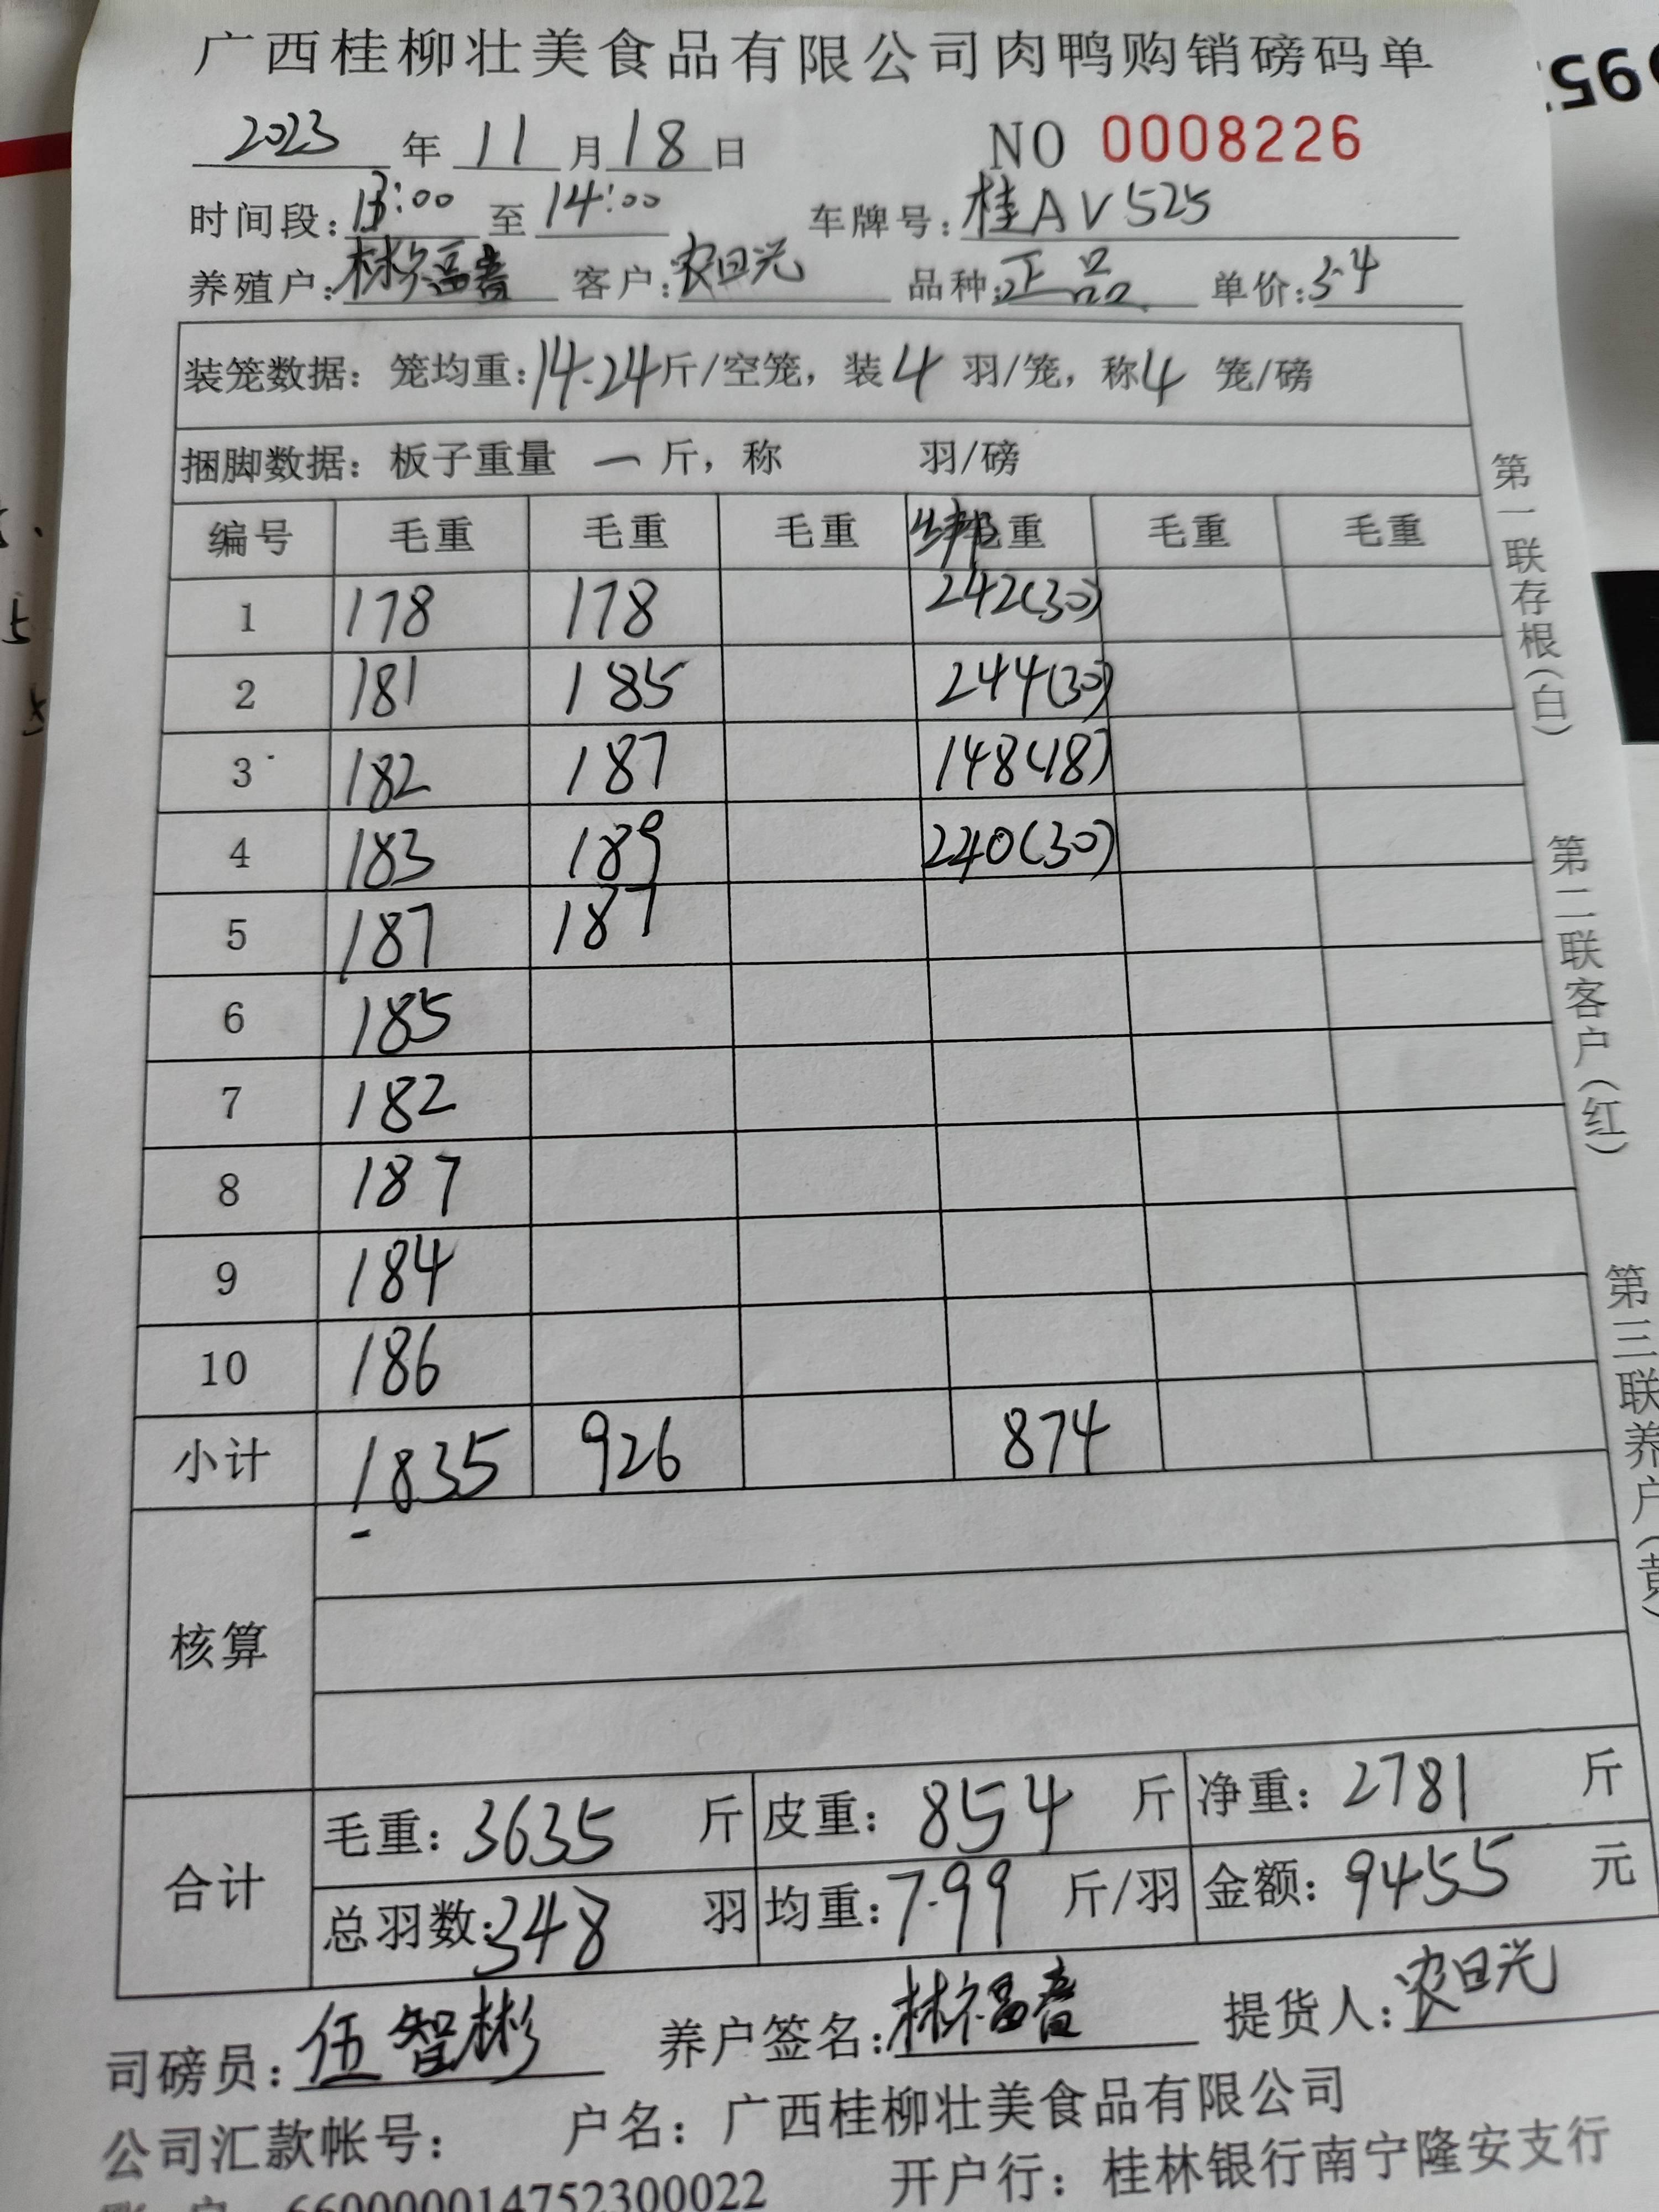 广西桂柳壮美食品有限公司肉鸭购销磅码单
2023 年 11 月 18 日 NO 0008226
时间段:13:00 至 14:00 车牌号:桂AV525
养殖户:林福 客户:农日光 品种:正品 单价:3.4
装笼数据:笼均重:14.24斤/空笼,装4 羽/笼,称4 笼/磅
捆脚数据:板子重量 一 斤,称 羽/磅
编号 毛重 毛重 毛重 绑毛重 毛重 毛重
1 178 178 242(30)
2 181 185 244(30)
3 182 187 148(18)
4 183 189 240(30)
5 187 187
6 185
7 182
8 187
9 184
10 186
小计 1835 926 874
核算
合计
毛重:3635 斤 皮重:854 斤 净重:2781 斤
总羽数:348 羽 均重:7.99 斤/羽 金额:9455 元
司磅员:伍智彬 养户签名:林福 提货人:农日光
公司汇款帐号: 户名:广西桂柳壮美食品有限公司
660000014752300022 开户行:桂林银行南宁隆安支行
第一联存根(白)
第二联客户(红)
第三联养户(黄)